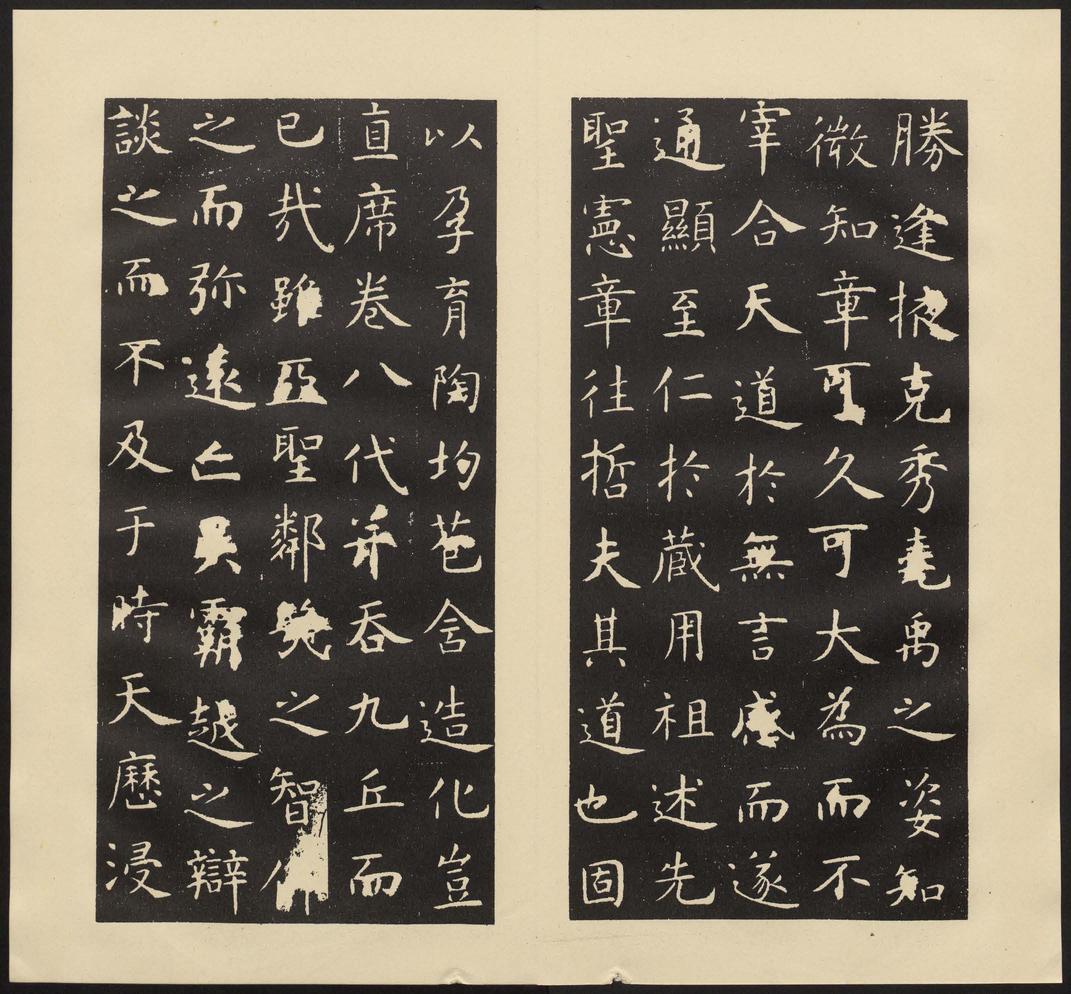 勝逢掖克秀堯禹之姿知
微知章可久可大為而不
宰合天道於無言感而遂
通顯至仁於蔵用祖述先
聖憲章往哲夫其道也固
以孕育陶均苞含造化豈
直席卷八代并吞九丘而
已哉雖亞聖鄰幾之智仰
之而弥遠亡吳霸越之辯
談之而不及于時天歷浸